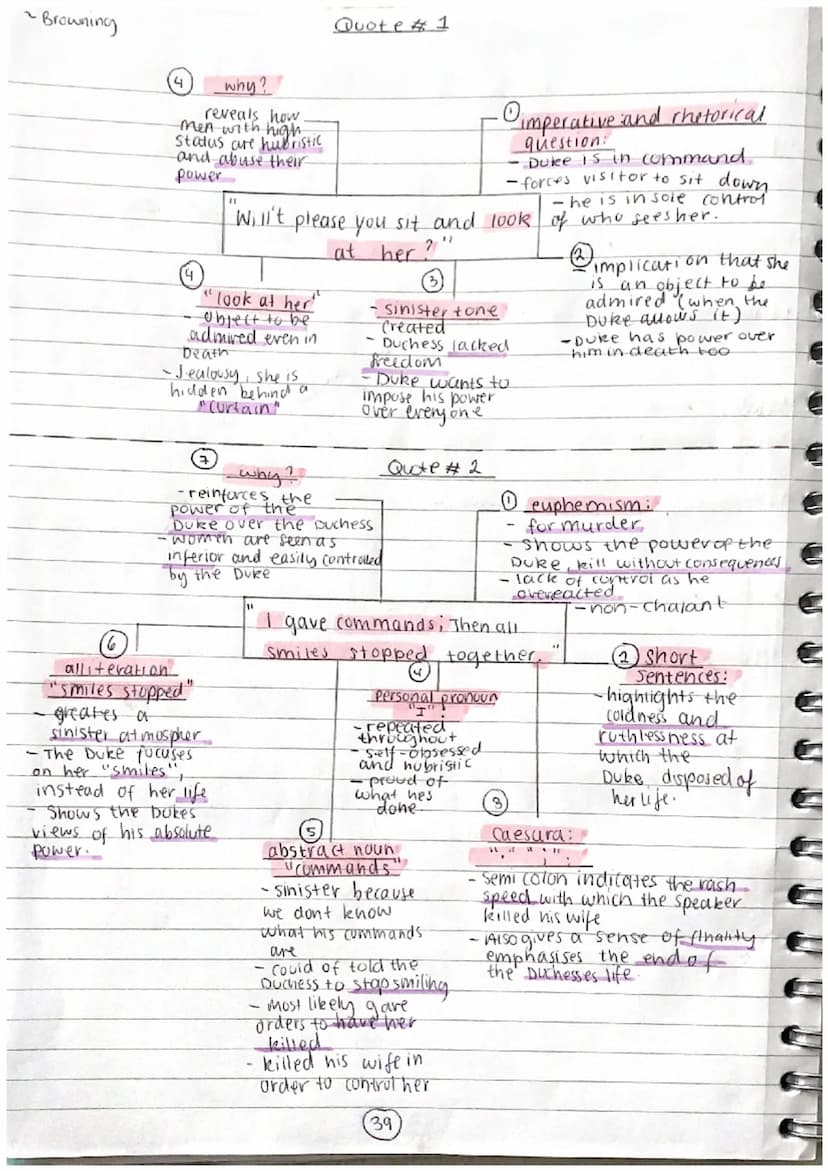 ~ Browning
Quote # 1
④ why?
reveals how
men with high
status are hubristic
and abuse their
power
① imperative and rhetorical
question:
- Duke is in command
- forces visitor to sit down
- he is in sole control
of who sees her.
"Will't please you sit and look
at her?"
② implication that she
is an object to be
admired (when the
Duke allows it)
- Duke has power over
him in death too
④
"look at her"
- object to be
admired even in
Death
- Jealousy, she is
hidden behind a
"curtain"
③
- sinister tone
created
- Duchess lacked
freedom
- Duke wants to
impose his power
over everyone
Quote # 2
⑦ why?
- reinforces the
power of the
Duke over the Duchess
- women are seen as
inferior and easily controlled
by the Duke
① euphemism:
- for murder
- shows the power of the
Duke, kill without consequences
- lack of control as he
overreacted
- non-chalant
"I gave commands; Then all
smiles stopped together."
⑥
alliteration
"smiles stopped"
- greates a
sinister atmospher
- The Duke focuses
on her "smiles",
instead of her life
- Shows the Dukes
views of his absolute
power.
④
personal pronoun
"I":
- repeated
throughout
- self-obsessed
and hubristic
- proud of
what hes
done
② short
sentences:
- highlights the
coldness and
ruthlessness at
which the
Duke disposed of
her life.
③
caesura:
"," ";":
- semi colon indicates the rash
speed with which the speaker
killed his wife
- Also gives a sense of finality
emphasises the end of
the Duchesses life
⑤
abstract noun
"commands"
- sinister because
we dont know
what his commands
are
- could of told the
Duchess to stop smiling
- most likely gave
orders to have her
killed
- killed his wife in
order to control her
39